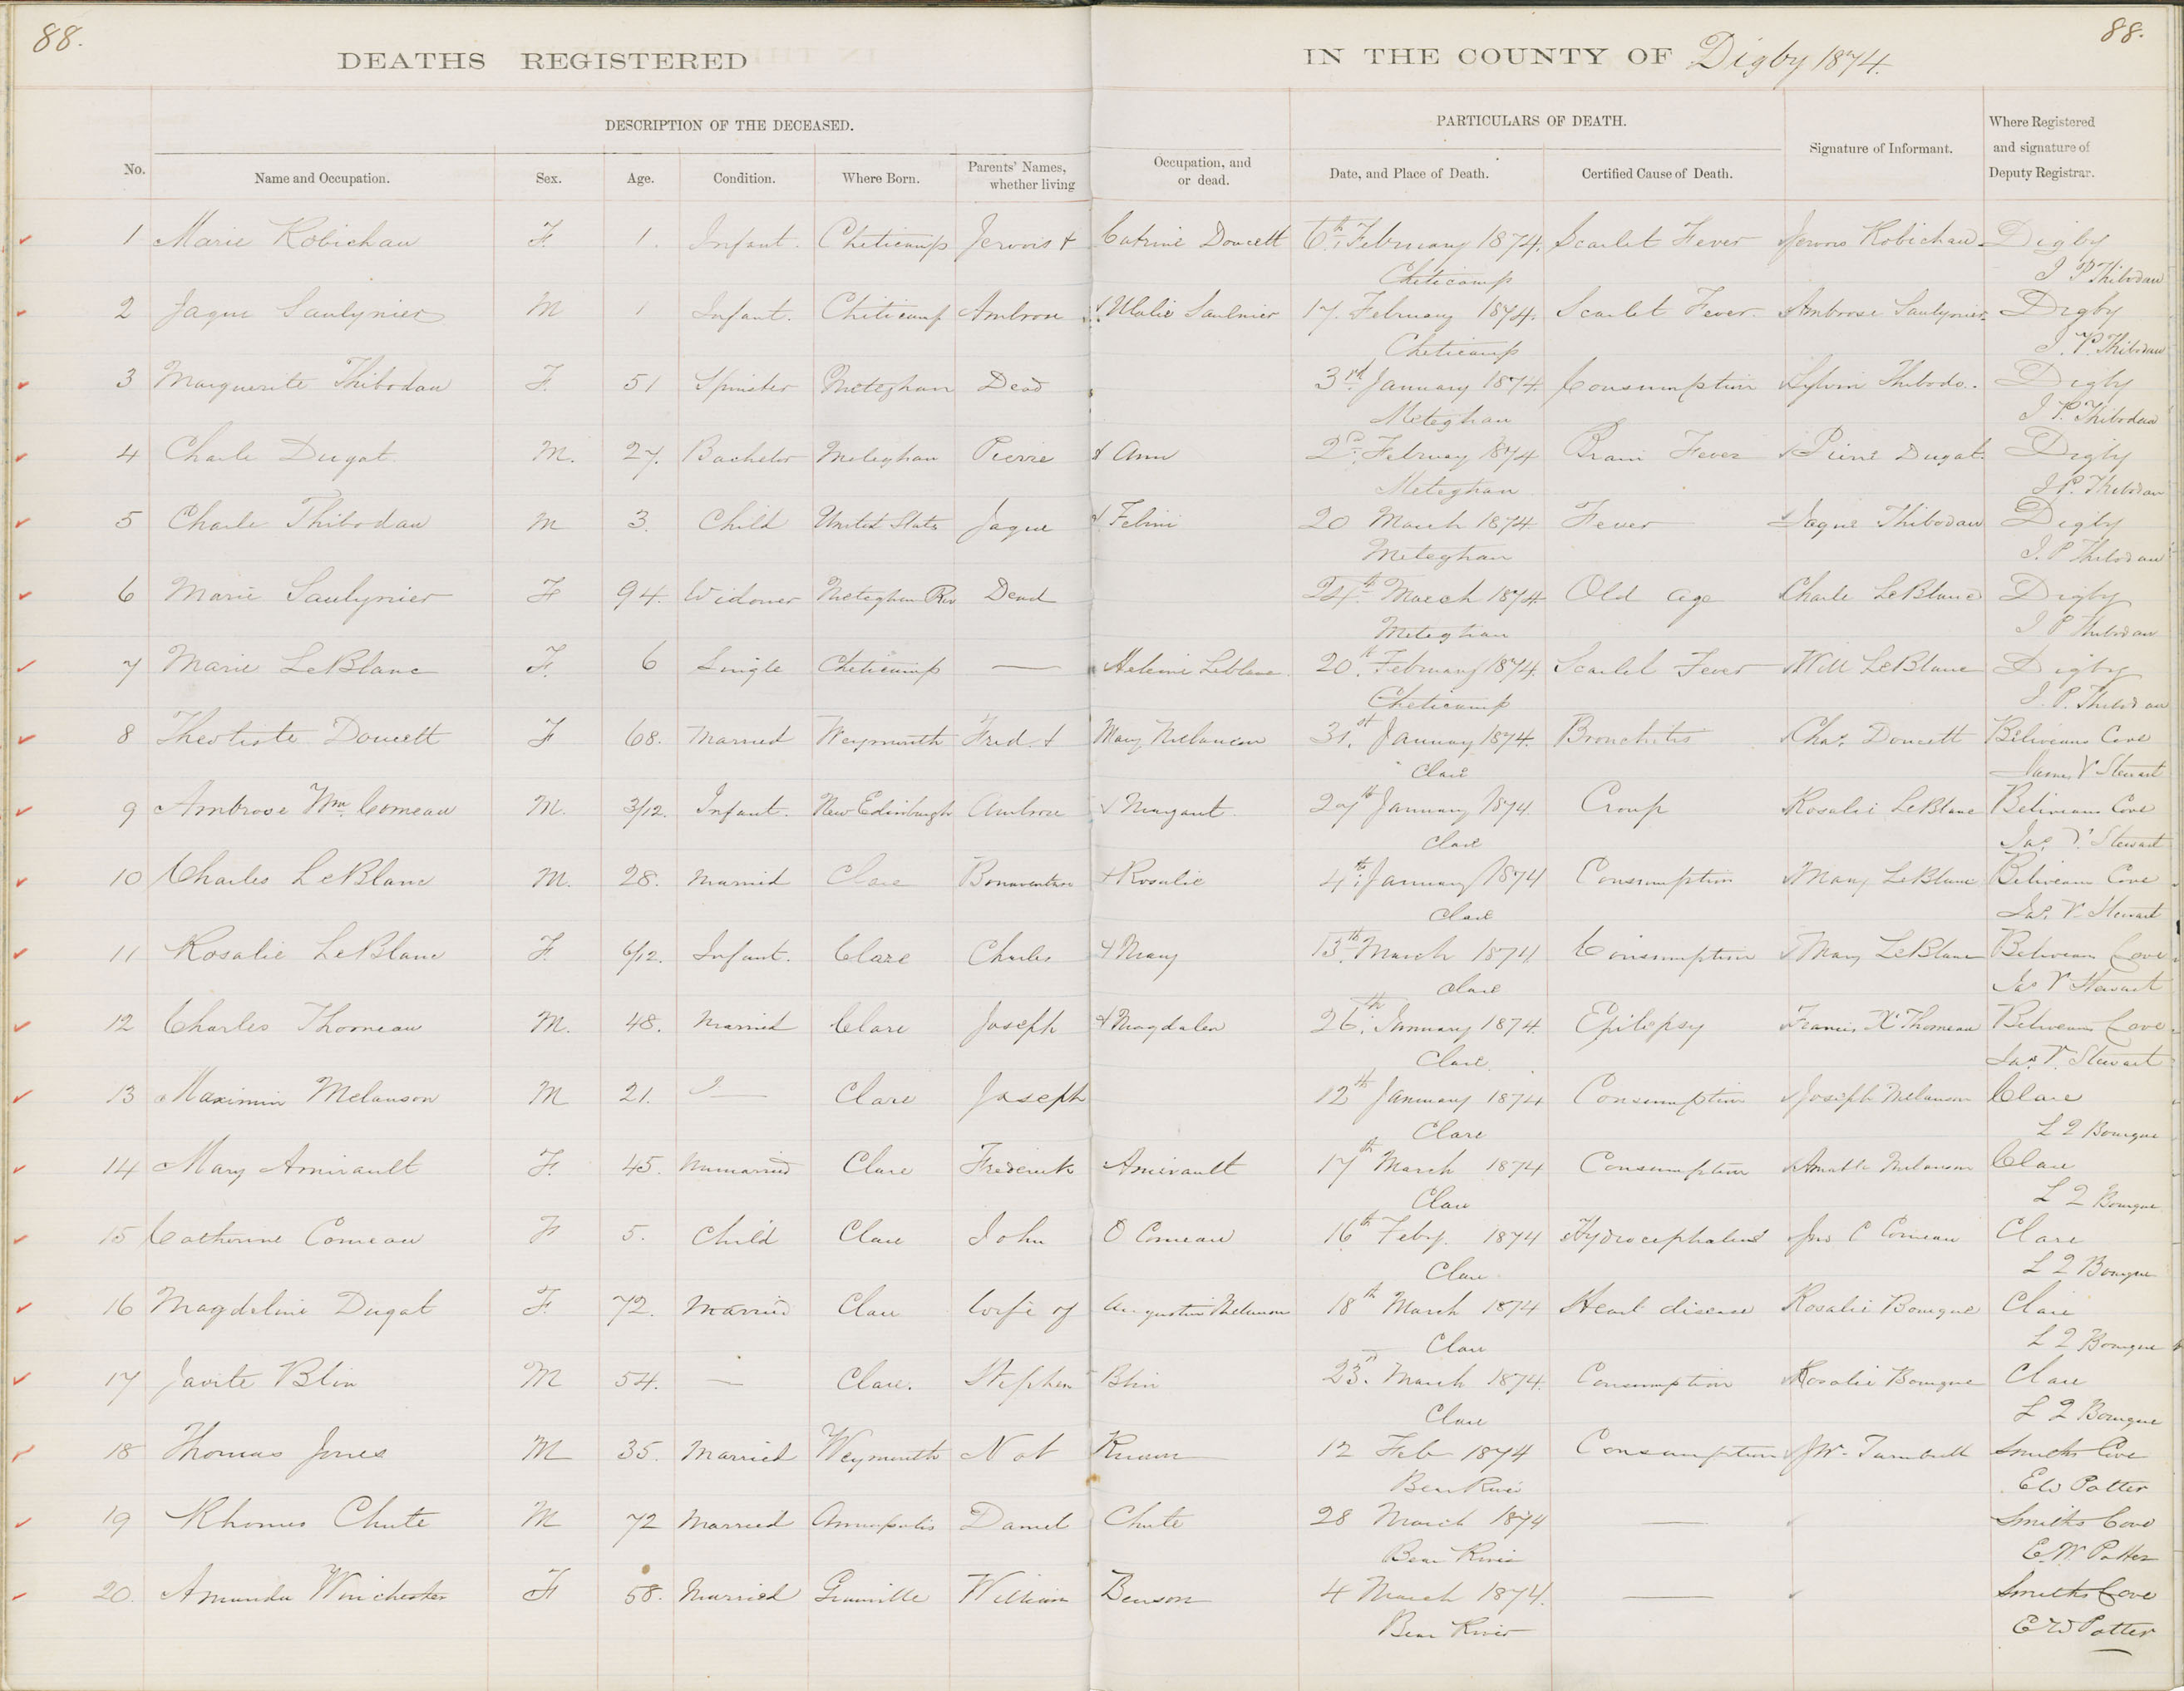 88.
88.
DEATHS REGISTERED IN THE COUNTY OF Digby 1874.
DESCRIPTION OF THE DECEASED.
PARTICULARS OF DEATH.
No. Name and Occupation. Sex. Age. Condition. Where Born. Parents' Names, whether living Occupation, and or dead. Date, and Place of Death. Certified Cause of Death. Signature of Informant. Where Registered and signature of Deputy Registrar.
1 Marie Robichau F. 1. Infant. Cheticamp Jervois + Catrine Doucett 6th February 1874. Scarlet Fever Jervois Robichau Digby
Cheticamp J P Thibodau
2 Jaque Saulynier M 1 Infant. Chiticamp Ambrose & Ulalie Saulnier 17. February 1874. Scarlet Fever. Ambrose Saulynier Digby
Cheticamp J. P. Thibodau
3 Marguerite Thibodau F. 51 Spinster Meteghan Dead 3rd January 1874. Consumption Sylvin Thibodo. Digby
Meteghan J P. Thibodau
4 Charle Dugat M. 27. Bachelor Meteghan Pierre & Ann 2d February 1874 Brain Fever Pierre Dugat. Digby
Meteghan J P. Thibodau
5 Charle Thibodau M 3. Child United States Jaque & 20 March 1874 Fever Jaque Thibodau Digby
Meteghan J. P Thibodau
6 Marie Saulynier F 94. Widower Meteghan Riv Dead 24th March 1874 Old age Charle LeBlanc Digby
Meteghan J P Thibodau
7 Marie LeBlanc F. 6 Single Cheticamp — Heleine Leblanc 20th February 1874. Scarlet Fever Will LeBlanc Digby
Cheticamp J. P. Thibodau
8 Theotiste Doucett F 68. Married Weymouth Fred. + Mary Melancon 31st January 1874. Bronchitis Chas. Doucett Beliveaus Cove
Clare James V Stewart
9 Ambrose Wm. Comeau M. 3/12. Infant. New Edinburgh Ambrose & Margaret. 27th January 1874. Croup Rosalie LeBlanc Beliveaus Cove
Clare Jas. V. Stewart
10 Charles LeBlanc M. 28. Married Clare Bonaventure + Rosalie 4th January 1874 Consumption Mary LeBlanc Beliveaus Cove
Clare Jas. V. Stewart
11 Rosalie LeBlanc F. 6/12. Infant. Clare Charles & Mary 13th March 1874. Consumption Mary LeBlanc Beliveaus Cove
Clare Jas V Stewart
12 Charles Thomeau M. 48. Married Clare Joseph & Magdalen 26th January 1874. Epilepsy Francis X Thomeau Beliveaus Cove
Clare. Jas. V. Stewart
13 Maximin Melanson M 21. ? — Clare Joseph 12th January 1874 Consumption Joseph Melanson Clare
Clare L 2 Bourque
14 Mary Amirault F. 45. Unmarried Clare Frederick Amirault 17th March 1874 Consumption Amable Melanson Clare
Clare L 2 Bourque
15 Catherine Comeau F 5. Child Clare John O Comeau 16th Feby. 1874 Hydrocephalus Jno C Comeau Clare
Clare L 2 Bourque
16 Magdeline Dugat F. 72. Married Clare Wife of Augustin Melanson 18th March 1874 Heart disease Rosalie Bourque Clare
Clare L 2 Bourque
17 Javite Blin M 54. — Clare. Stephen Blin 23rd. March 1874. Consumption Rosalie Bourque Clare
Clare L 2 Bourque
18 Thomas Jones M 35. Married Weymouth Not Known 12 Feb 1874 Consumption J W. Turnbull Smiths Cove
Bear River EW Potter
19 Rhomes Chute M 72 Married Annapolis Daniel Chute 28 March 1874 — Smiths Cove
Bear River E. W. Potter
20. Amanda Winchester F 58. Married Granville William Benson 4 March 1874. — Smiths Cove
Bear River E W Potter